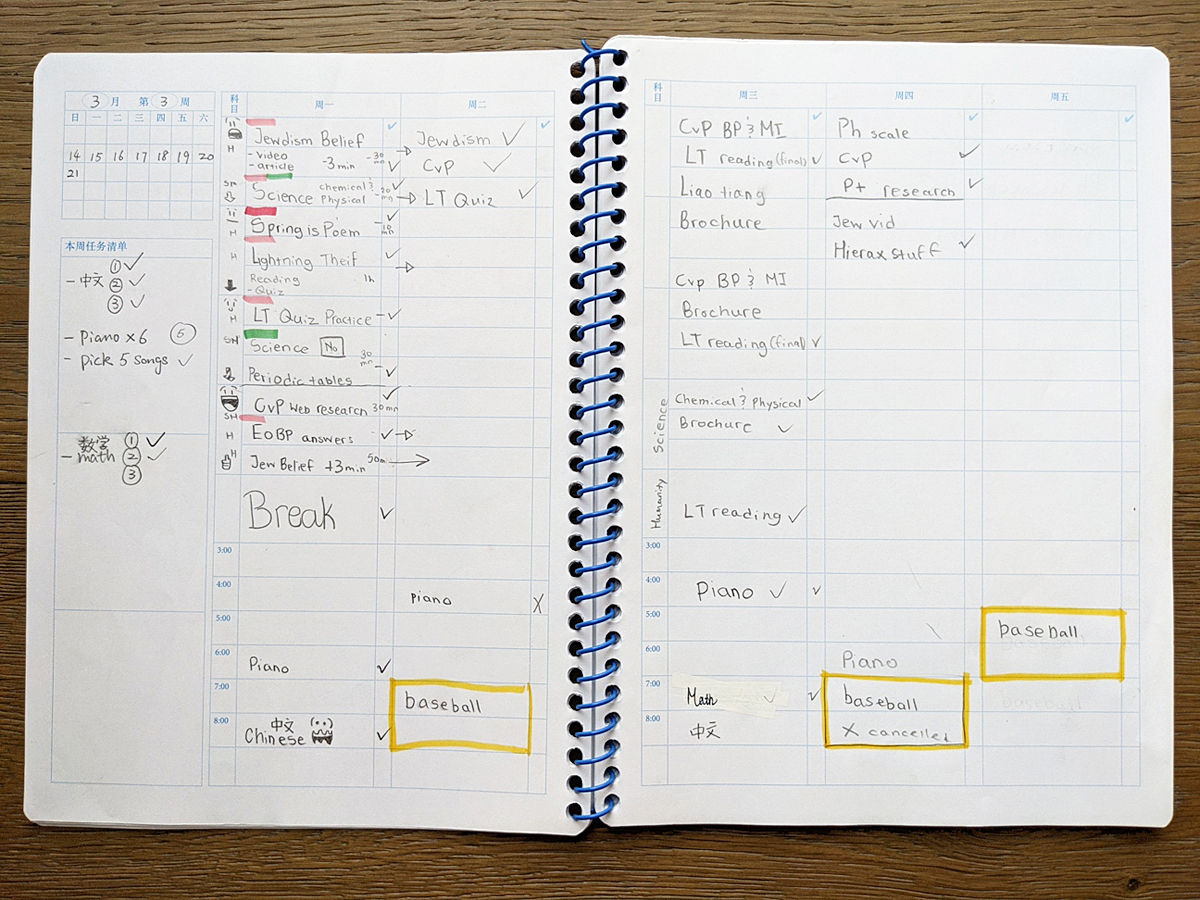 3 月 第 3 周
日 一 二 三 四 五 六
14 15 16 17 18 19 20
21
本周任务清单
- 中文 ① ✓
② ✓
③ ✓
- Piano x 6 ⑤
- Pick 5 songs ✓
数学 ① ✓
- math ② ✓
③
科目 周一 周二
Jewdism Belief
- video
- article -3 min -30 min ✓
H
SM Science chemical & physical -20 min ✓
Spring is Poem -10 min ✓
H
H Lightning Theif ✓
Reading 1h
- Quiz
LT Quiz Practice - ✓
H
SM Science No
30 min
Periodic tables - ✓
CvP Web research 30 min ✓
SM
H EoBP answers ✓
H
Jew Belief +3min 50m
Break ✓
3:00
4:00
5:00
6:00
Piano ✓
7:00
8:00
中文
Chinese ✓
Jewdism ✓
CvP ✓
LT Quiz ✓
piano X
baseball
科目 周三 周四 周五
CvP BP & MI
LT reading (final) ✓
Liao tiang
Brochure
CvP BP & MI
Brochure
LT reading (final) ✓
Science
Chemical & Physical ✓
Brochure ✓
Humanity
LT reading ✓
3:00
4:00
Piano ✓ ✓
5:00
6:00
7:00
Math ✓ ✓
8:00
中文
Ph scale
CvP ✓
P+ research ✓
Jew vid
Hierax stuff ✓
Piano
baseball
X cancelled
baseball